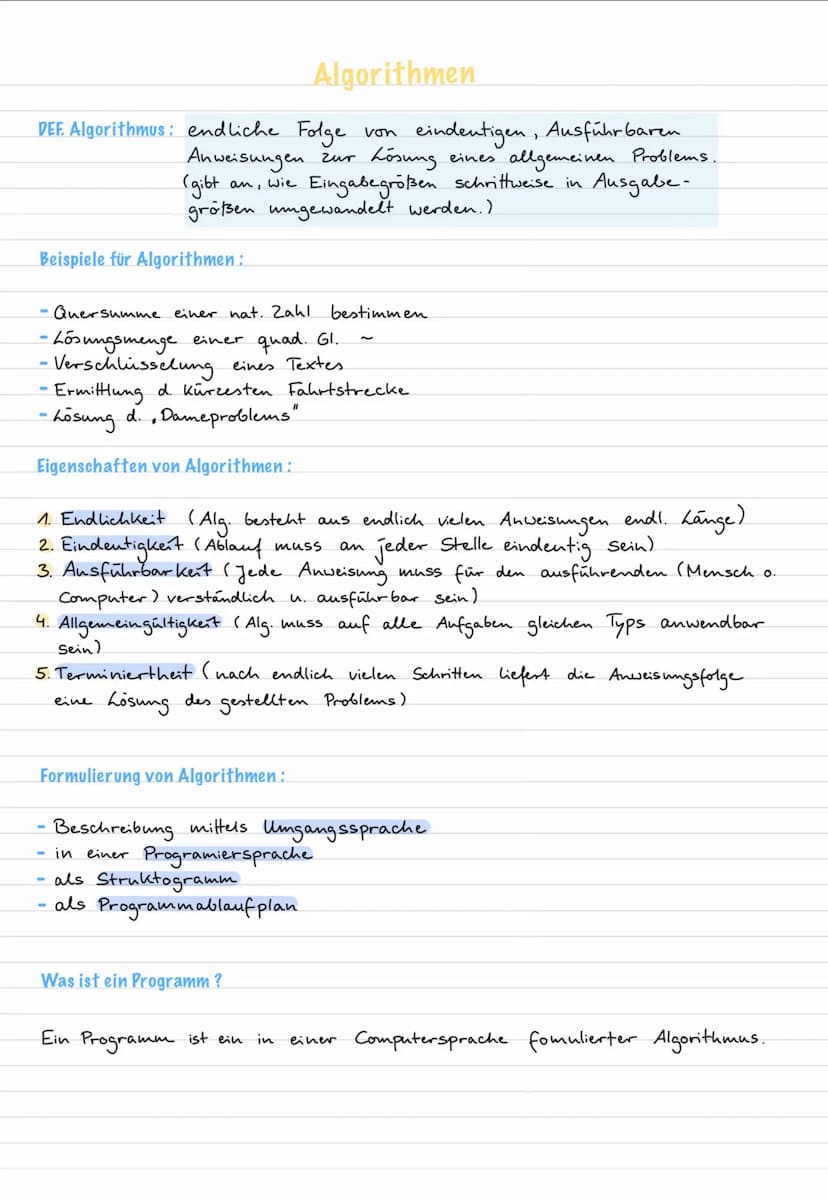 Algorithmen
DEF. Algorithmus: endliche Folge von eindeutigen, Ausführbaren
Anweisungen zur Lösung eines allgemeinen Problems.
(gibt an, wie Eingabegrößen schrittweise in Ausgabe-
größen umgewandelt werden.)
Beispiele für Algorithmen:
- Quersumme einer nat. Zahl bestimmen
- Lösungsmenge einer quad. Gl. ~
- Verschlüsselung eines Textes
- Ermittlung d. kürzesten Fahrtstrecke
- Lösung d. „Dameproblems"
Eigenschaften von Algorithmen:
1. Endlichkeit (Alg. besteht aus endlich vielen Anweisungen endl. Länge)
2. Eindeutigkeit (Ablauf muss an jeder Stelle eindeutig sein)
3. Ausführbarkeit (Jede Anweisung muss für den ausführenden (Mensch o.
Computer) verständlich u. ausführbar sein)
4. Allgemeingültigkeit (Alg. muss auf alle Aufgaben gleichen Typs anwendbar
sein)
5. Terminiertheit (nach endlich vielen Schritten liefert die Anweisungsfolge
eine Lösung des gestellten Problems)
Formulierung von Algorithmen:
- Beschreibung mittels Umgangssprache
- in einer Programiersprache
- als Struktogramm
- als Programmablaufplan
Was ist ein Programm?
Ein Programm ist ein in einer Computersprache fomulierter Algorithmus.